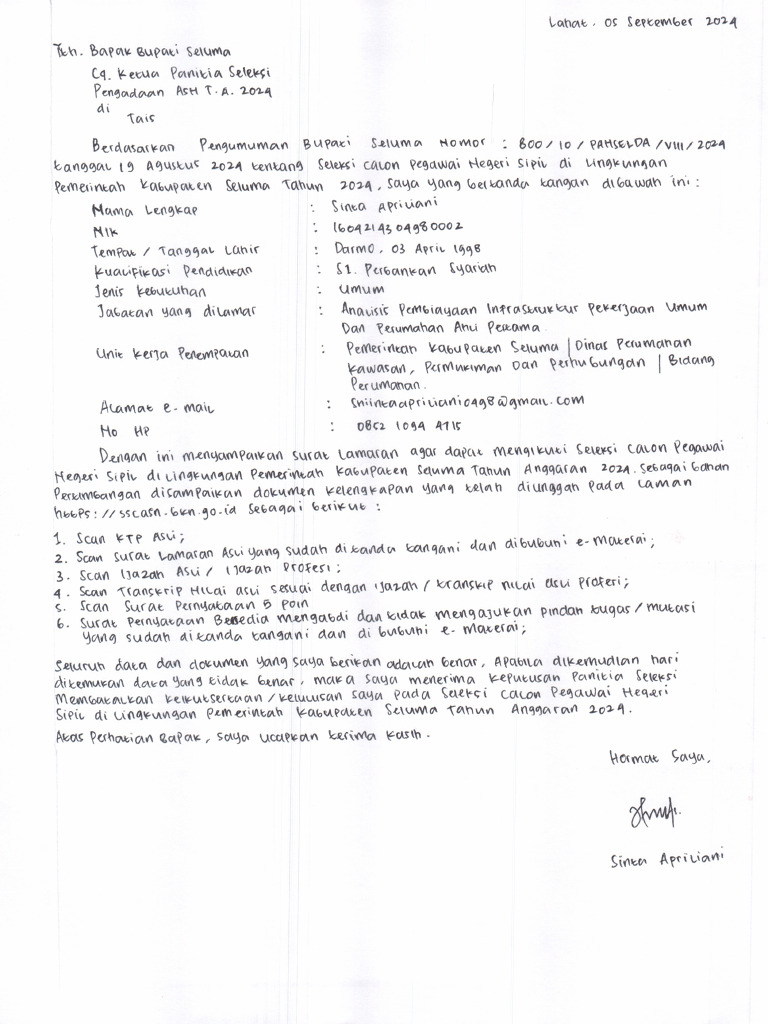 Lahat, 05 September 2024
Yth. Bapak Bupati Seluma
Cq. Ketua Panitia Seleksi
Pengadaan ASN T.A. 2024
di
Tais
Berdasarkan Pengumuman Bupati Seluma Nomor : 800/10/PANSELDA/VIII/2024
tanggal 19 Agustus 2024 tentang Seleksi Calon Pegawai Negeri Sipil di Lingkungan
Pemerintah Kabupaten Seluma Tahun 2024, saya yang bertanda tangan dibawah ini :
Nama Lengkap : Sinta Apriliani
NIK : 1604214304980002
Tempat / Tanggal Lahir : Darmo, 03 April 1998
Kualifikasi Pendidikan : S1. Perbankan Syariah
Jenis Kebutuhan : Umum
Jabatan yang dilamar : Analisis Pembiayaan Infrastruktur Pekerjaan Umum
Dan Perumahan Ahli Pertama
Unit Kerja Penempatan : Pemerintah Kabupaten Seluma | Dinas Perumahan
Kawasan, Permukiman Dan Perhubungan | Bidang
Perumahan.
Alamat e-mail : Sniintaapriliani0498@gmail.com
No HP : 0852 1094 4715
Dengan ini menyampaikan surat lamaran agar dapat mengikuti Seleksi Calon Pegawai
Negeri Sipil di Lingkungan Pemerintah Kabupaten Seluma Tahun Anggaran 2024. Sebagai bahan
Pertimbangan disampaikan dokumen kelengkapan yang telah diunggah pada laman
https://sscasn.bkn.go.id sebagai berikut :
1. Scan KTP Asli;
2. Scan Surat Lamaran Asli yang sudah ditanda tangani dan dibubuhi e-materai;
3. Scan Ijazah Asli / Ijazah Profesi;
4. Scan Transkrip Nilai asli sesuai dengan ijazah / transkip nilai asli profesi;
5. Scan Surat Pernyataan 5 Poin
6. Surat Pernyataan Bersedia mengabdi dan tidak mengajukan pindah tugas / mutasi
yang sudah ditanda tangani dan di bubuhi e-materai;
Seluruh data dan dokumen yang saya berikan adalah benar, Apabila dikemudian hari
ditemukan data yang tidak benar, maka saya menerima keputusan Panitia Seleksi
Membatalkan keikutsertaan/kelulusan saya pada Seleksi Calon Pegawai Negeri
Sipil di Lingkungan Pemerintah Kabupaten Seluma Tahun Anggaran 2024.
Atas Perhatian Bapak, saya ucapkan terima kasih.
Hormat Saya,
Sinta Apriliani